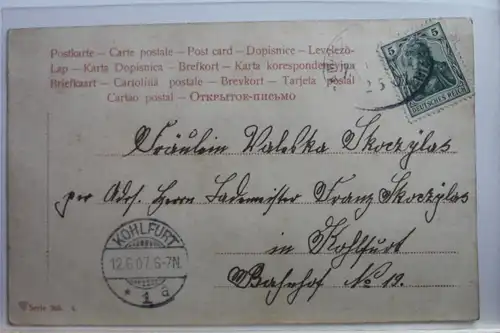 Postkarte – Carte postale – Post card – Dopisnice – Levelező-
Lap – Karta Dopisnica – Brefkort – Karta korespondencyjna
Briefkaart – Cartolina postale – Brevkort – Tarjeta postal
Cartao postal – Открытое-письмо
5 5
DEUTSCHES REICH
Fräulein Valeska Skoczylas
per Adr. Herrn Lademeister Franz Skoczylas
in Kohlfurt
Bahnhof No 19.
KOHLFURT
12.6.07.6-7N.
* 1 a
Serie 368. 4